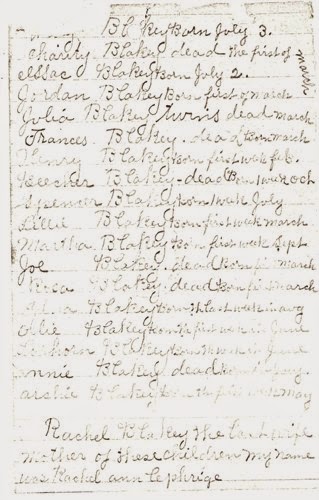 Blakey Born July 3.
Charity Blakey dead the first of march
essac Blakey Born July 2.
Jordan Blakey Born first of march
Julia Blakey twins dead march
Frances Blakey. dead Born march
Henry Blakey Born first week feb.
Beecher Blakey-dead Born week oct
Spencer Blakey Born week July
Lillie Blakey Born first week march
Martha Blakey Born first week Sept
Joe Blakey. dead Born march
Rosa Blakey dead Born first march
Blakey Born last week in aug
Olie Blakey Born the first week in June
Blakey Born week in June
annie Blakey dead Born
archie Blakey Born the week may
Rachel Blakey the last wife
mother of these children my name
was Rachel ann